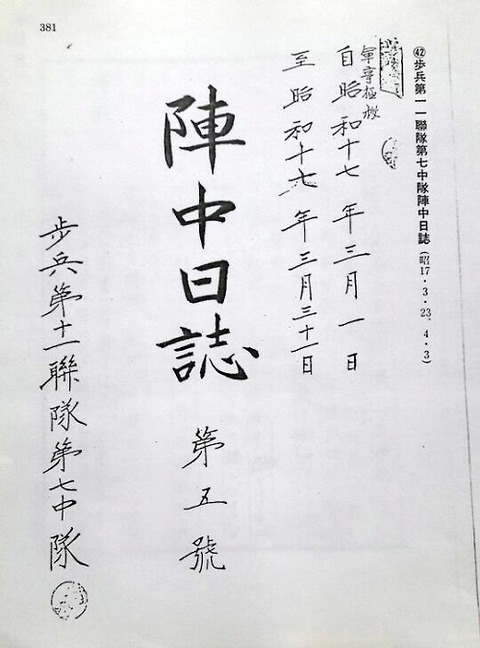 381
㊷歩兵第一一聯隊第七中隊陣中日誌（昭17・3・23、4・3）
軍事極秘
自昭和十七年三月一日
至昭和十七年三月三十一日
陣中日誌
第五號
歩兵第十一聯隊第七中隊